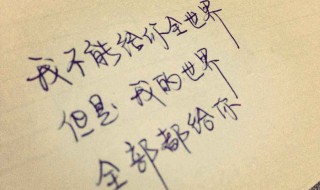 我不能给你全世界
但是我的世界
全部都给你